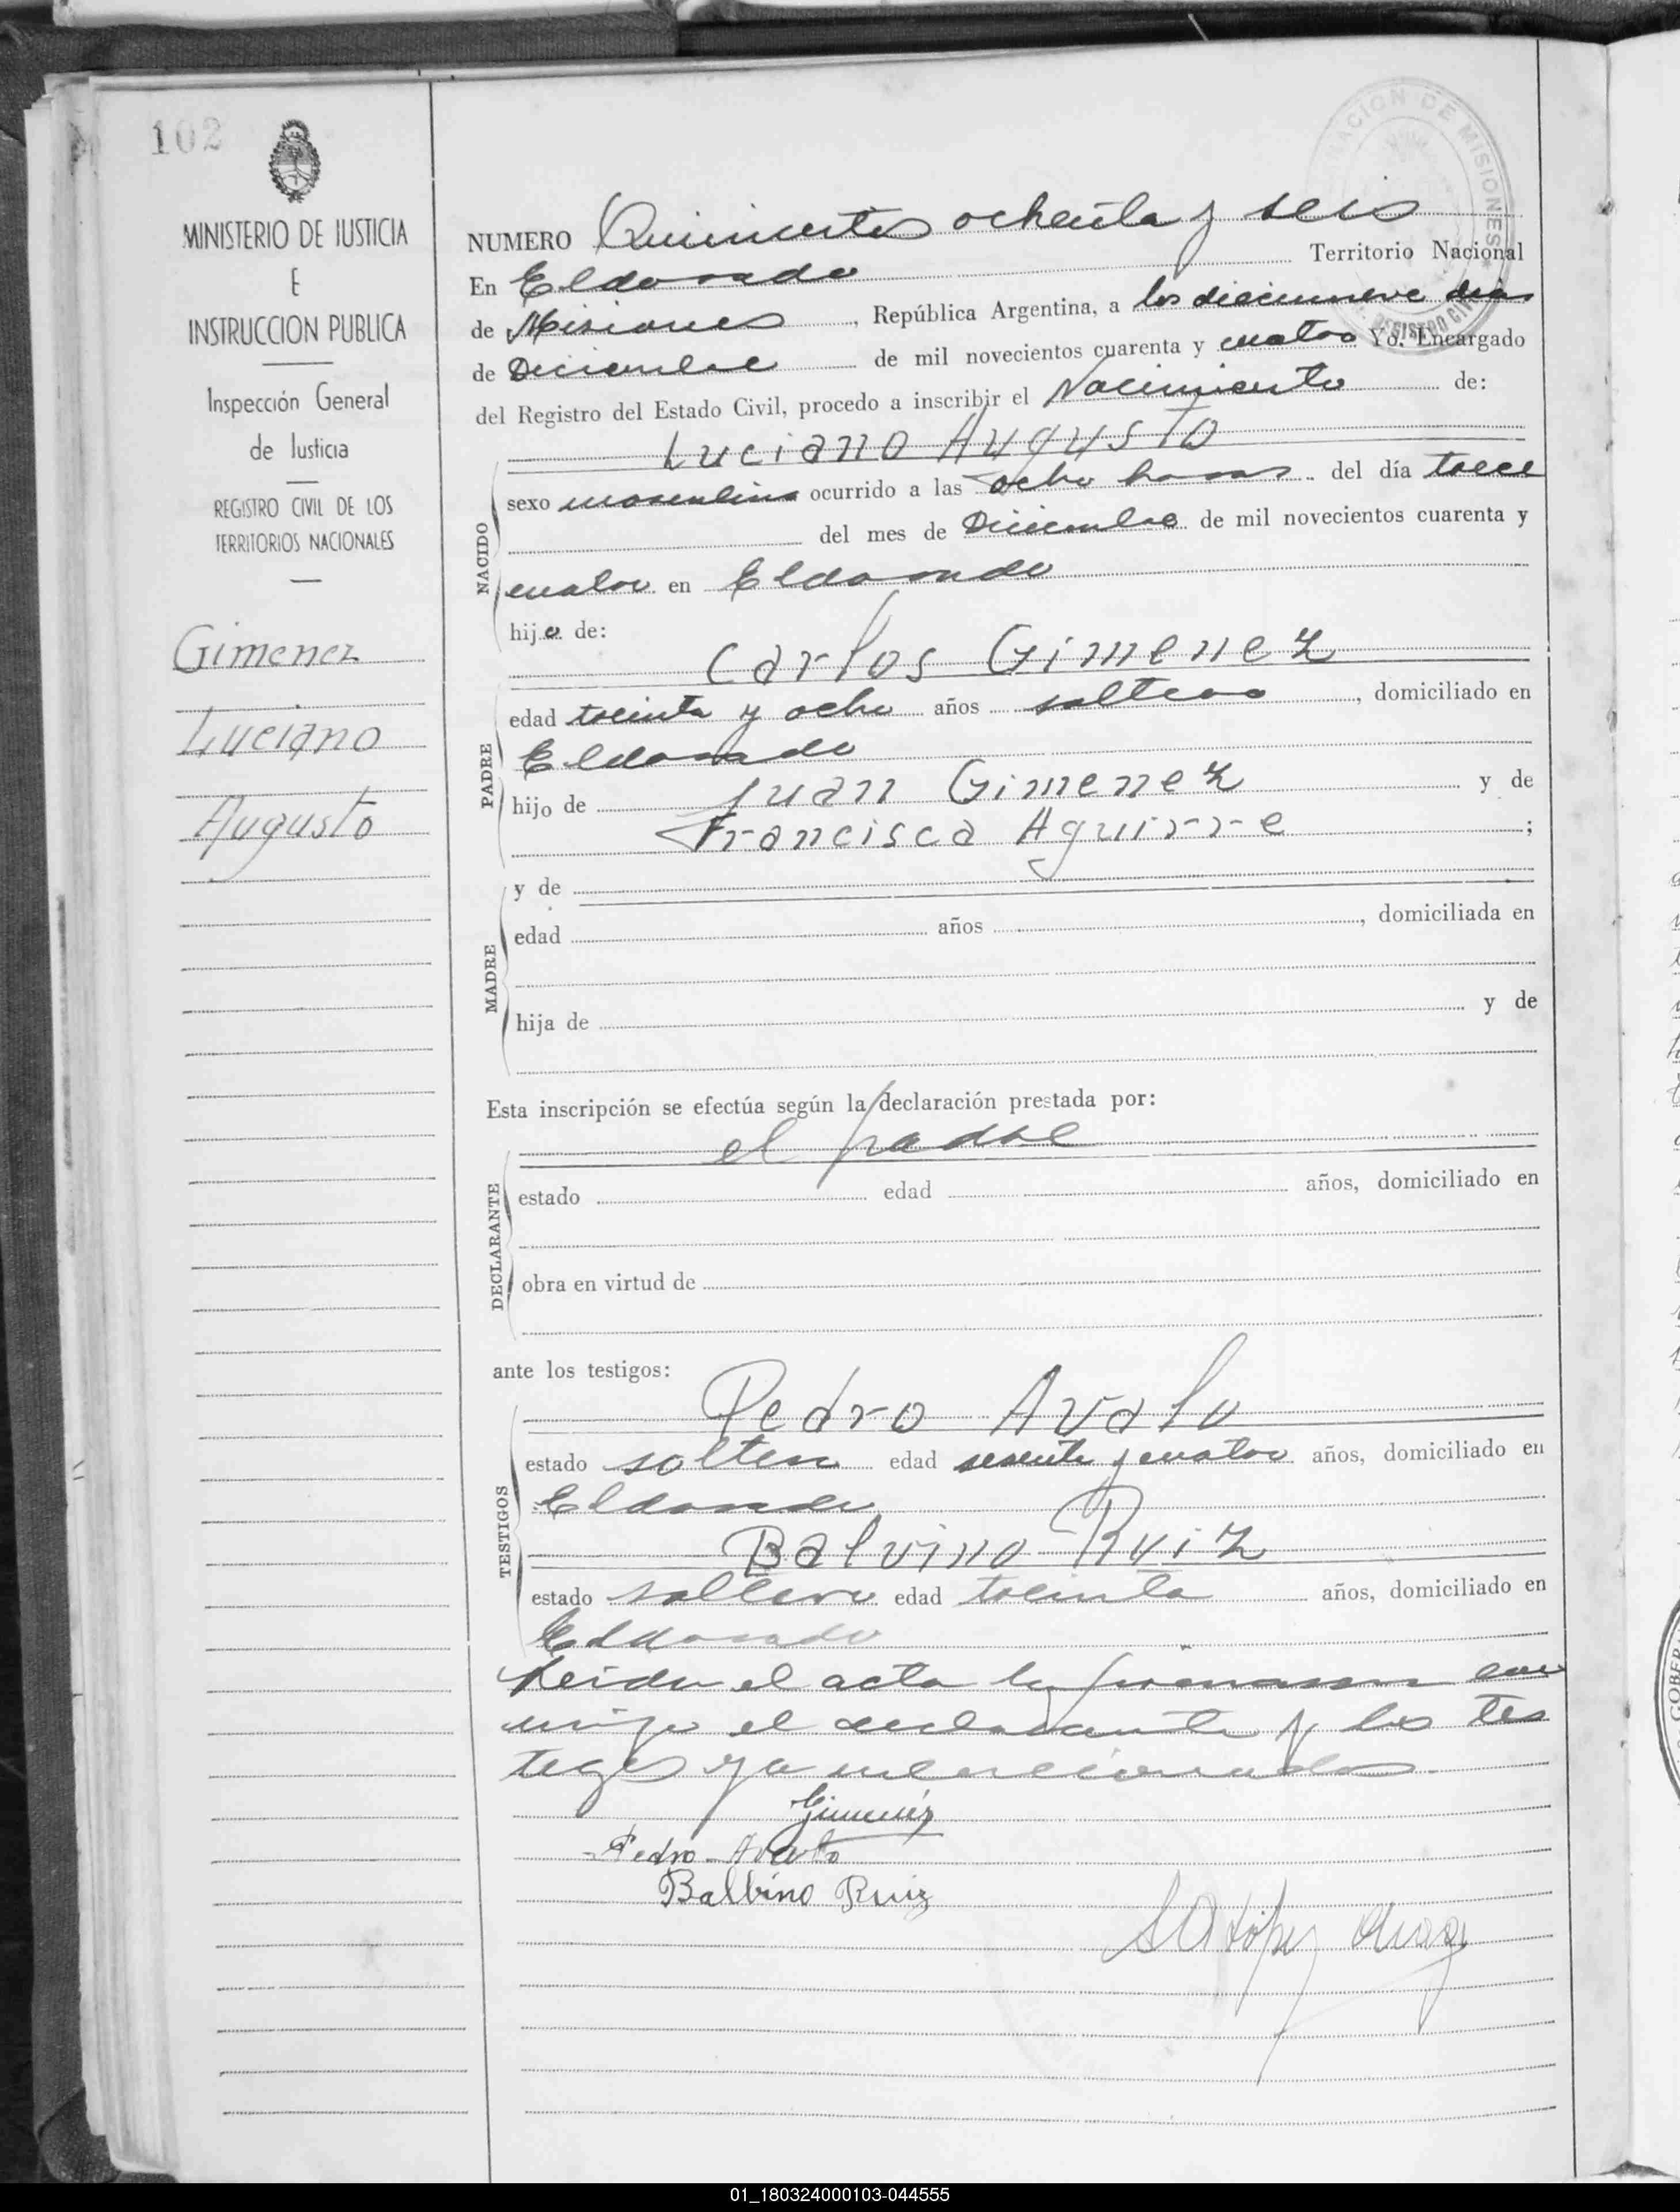 102
MINISTERIO DE JUSTICIA
E
INSTRUCCION PUBLICA
Inspección General
de Justicia
REGISTRO CIVIL DE LOS
TERRITORIOS NACIONALES
Gimenez
Luciano
Augusto
NACION DE MISIONES
REGISTRO CIVIL
NUMERO Quinientos ochenta y seis
En Eldorado Territorio Nacional
de Misiones, República Argentina, a los diecinueve dias
de Diciembre de mil novecientos cuarenta y cuatro Yo. Encargado
del Registro del Estado Civil, procedo a inscribir el Nacimiento de:
Luciano Augusto
NACIDO
sexo masculino ocurrido a las ocho horas del día trece
del mes de Diciembre de mil novecientos cuarenta y
cuatro en Eldorado
hijo de:
Carlos Gimenez
PADRE
edad treinta y ocho años soltero, domiciliado en
Eldorado
hijo de Juan Gimenez y de
Francisca Aguirre ;
MADRE
y de
edad años , domiciliada en
hija de y de
Esta inscripción se efectúa según la declaración prestada por:
el padre
DECLARANTE
estado edad años, domiciliado en
obra en virtud de
ante los testigos:
Pedro Avalo
TESTIGOS
estado soltero edad sesenta y cuatro años, domiciliado en
Eldorado
Balvino Ruiz
estado soltero edad treinta años, domiciliado en
Eldorado
Leida el acta la firmaron con
migo el declarante y los tes
tigos ya mencionados.
Gimenez
Pedro Avalo
Balbino Ruiz
01_180324000103-044555